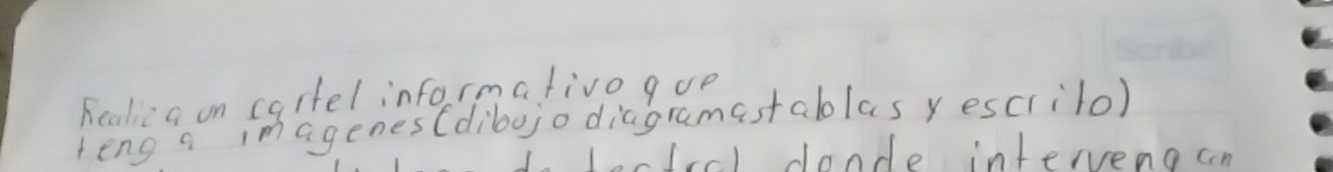 Realiza un cartel informativo que
tenga imagenes(dibujo diagramastablas y escrito)
donde intervengan